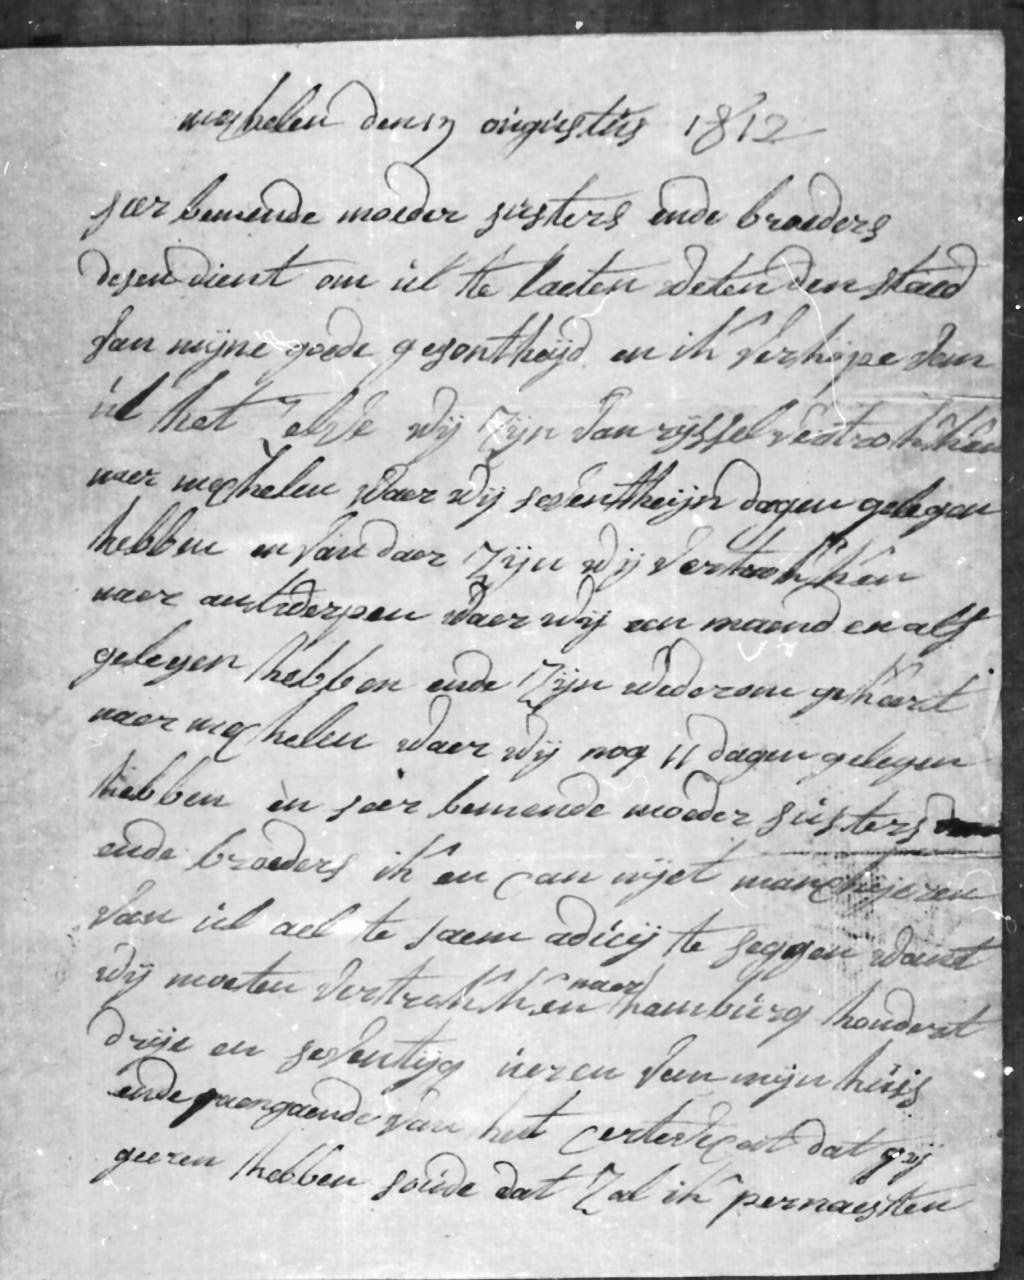 meghelen den 17 ougustus 1812
seer beminde moeder susters ende broeders
desen dient om ul te laeten weten den staed
van mijne goede gesontheijd en ik verhope van
ul het zelve wij zijn van rijssel vertrokken
naer meghelen waer wij seventheijn dagen gelegen
hebben en van daer zijn wij vertrokken
naer antwerpen waer wij een maend en alf
gelegen hebben ende zijn wederom gekeert
naer meghelen waer wij nog 11 dagen gelegen
hebben en seer beminde moeder susters
ende broeders ik en can nijet manqueren
van ul ael te saem aduij te seggen want
wij moeten vertrekken naer hamburg hondert
drije en seventijg ueren van mijn huijs
ende aengaende van het certevecat dat gij
geeren hebben soude dat zal ik pernaesten